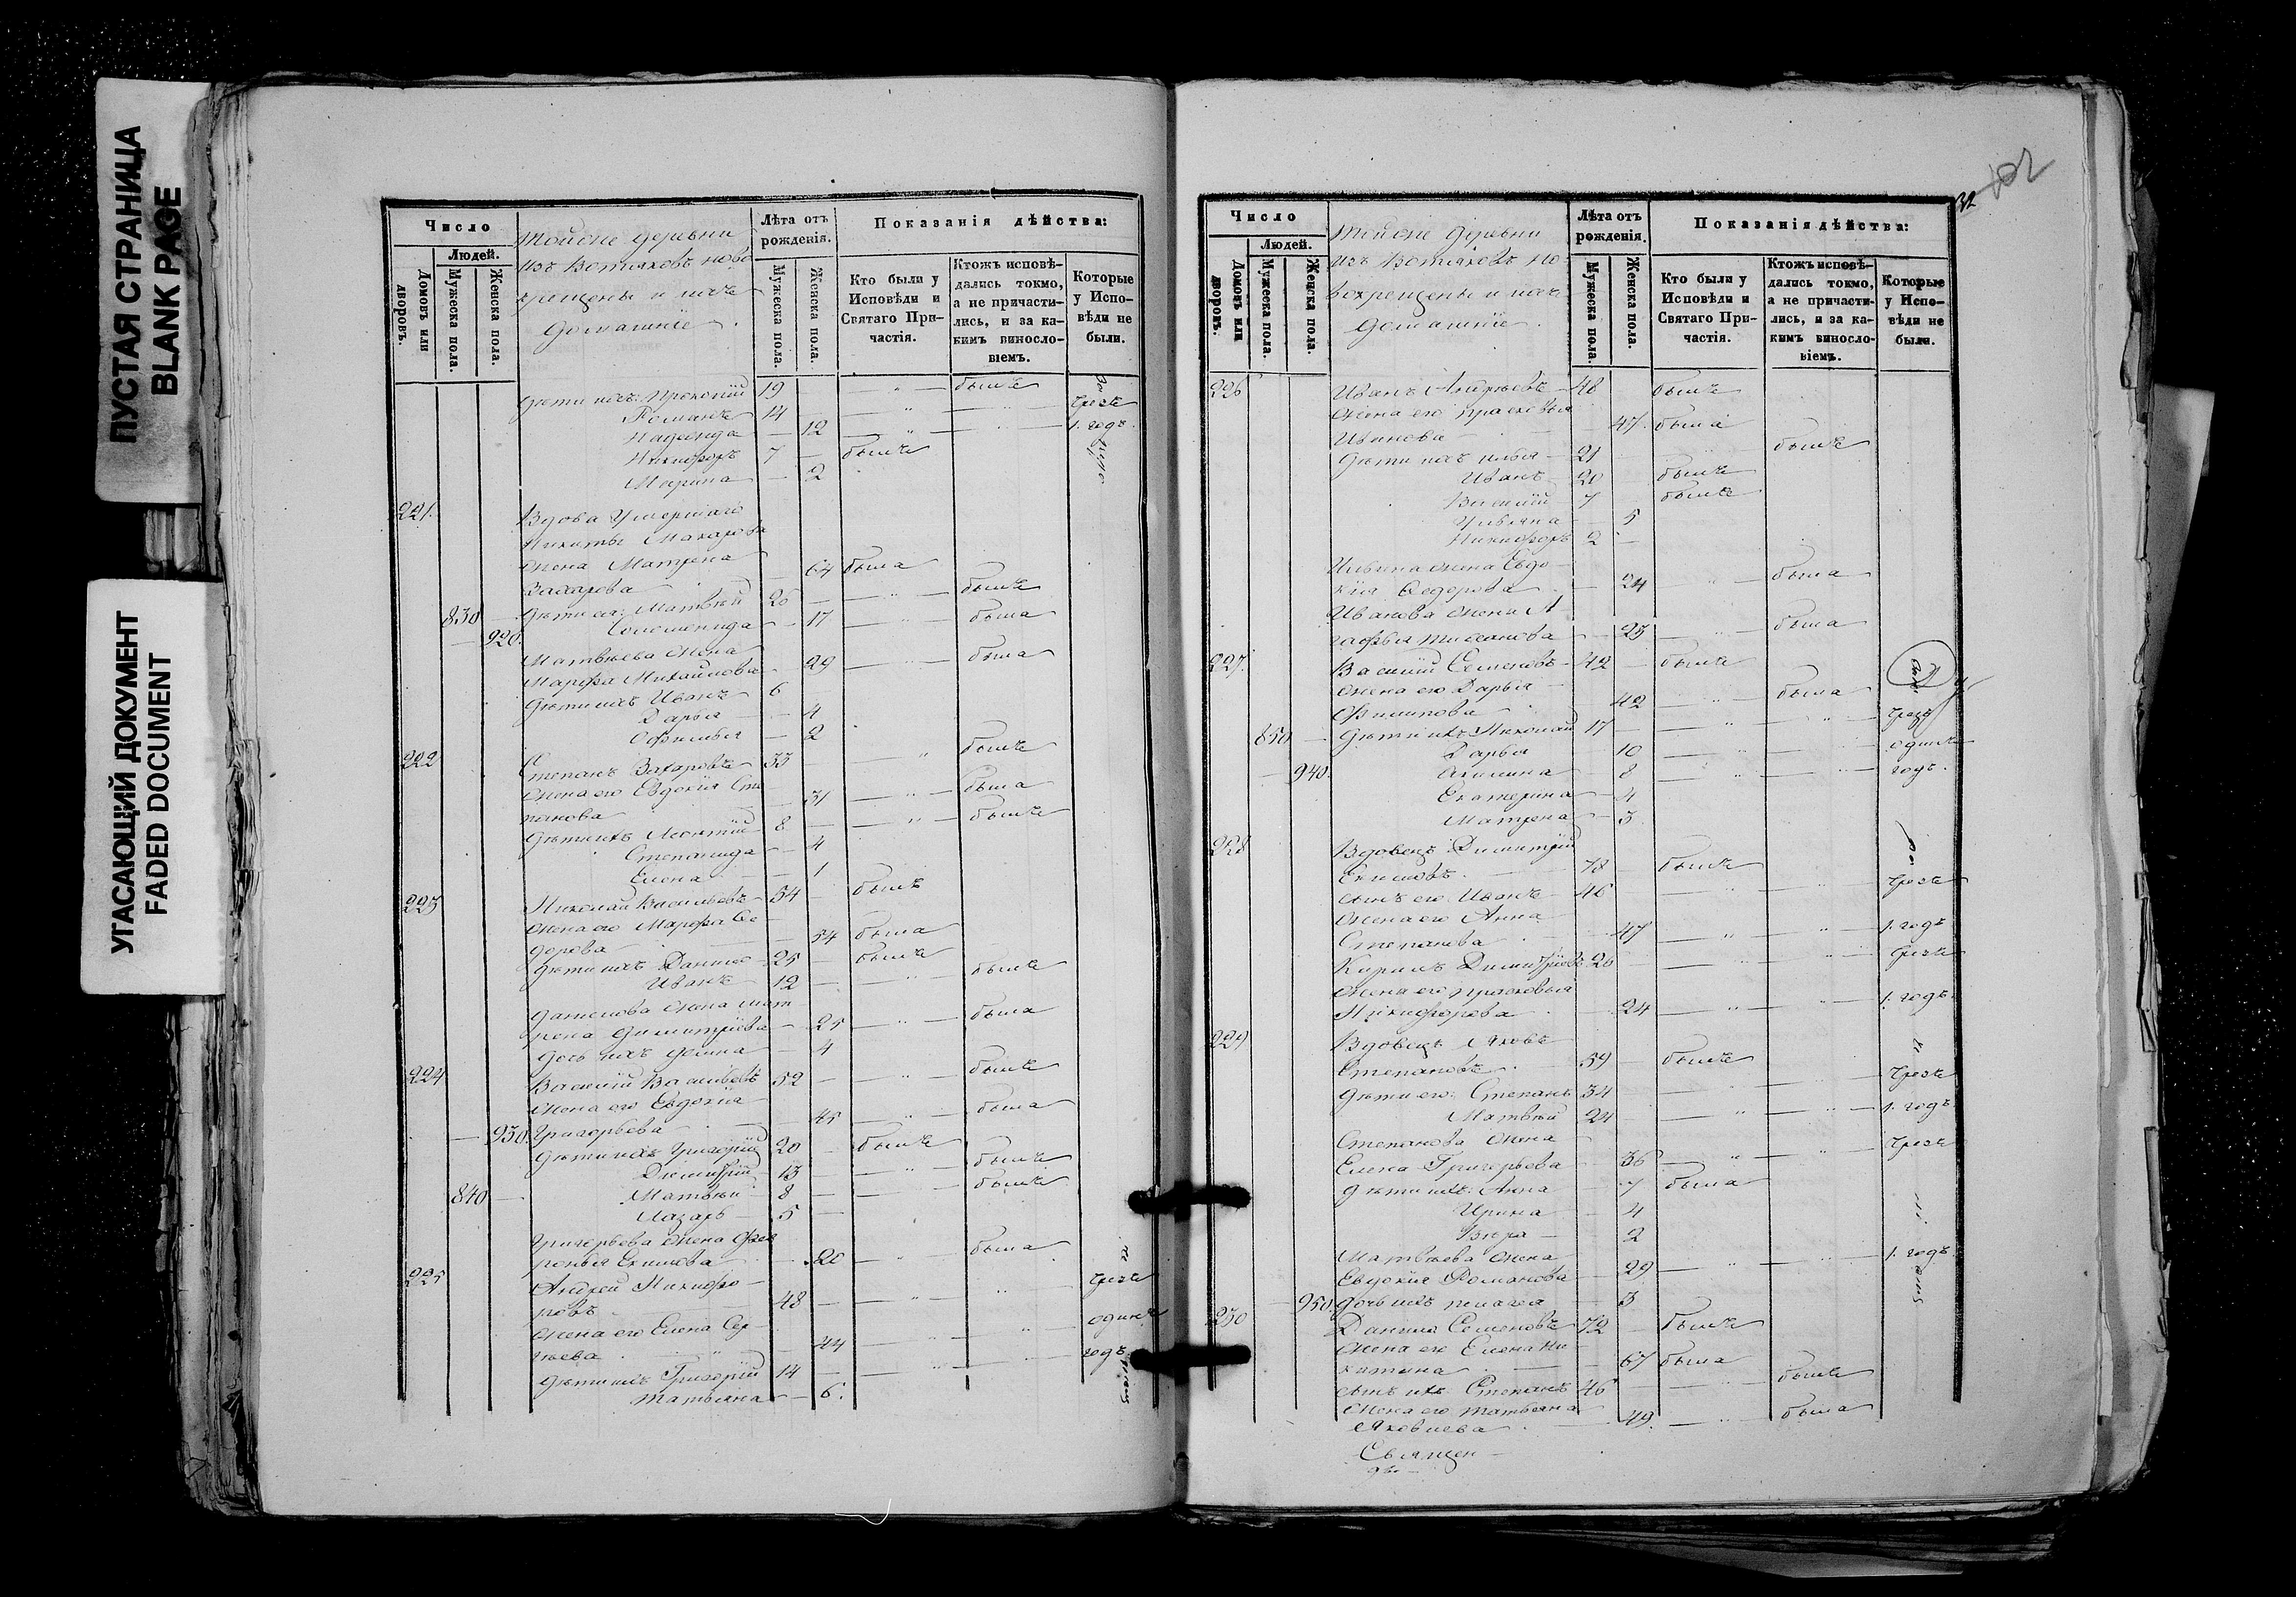 ПУСТАЯ СТРАНИЦА
BLANK PAGE
УГАСАЮЩИЙ ДОКУМЕНТ
FADED DOCUMENT
Число
Людей.
Домовъ или дворовъ.
Мужеска пола.
Женска пола.
Тойже деревни
изъ Вотяковъ ново
крещены и ихъ
домашніе
Лѣта отъ рожденія.
Мужеска пола.
Женска пола.
Показанія дѣйства:
Кто были у Исповѣди и Святаго Причастія.
Ктожъ исповѣдались токмо, а не причастились, и за какимъ винословіемъ.
Которые у Исповѣди не были.
дѣти ихъ: Прокопій 19 былъ
Романъ 14 чрезъ
Надежда 12 1. годъ
Никифоръ 7 былъ
Марина 2
221. Вдова Умершаго
Никиты Макарова
жена Матрена
Захарова 64 была
830 дѣти ея: Матвѣй 26 былъ
920. Соломонида 17 была
Матвѣева жена
Марфа Михайлова 29 была
дѣти ихъ Иванъ 6
Дарья 4
Офимья 2
222 Степанъ Захаровъ 33 былъ
жена его Евдокія Сте
панова 31 была
дѣти ихъ Леонтій 8 былъ
Степанида 4
Елена 1
223 Николай Васильевъ 54 былъ
жена его Марфа Ѳе
дорова 54 была
дѣти ихъ Данило 25 былъ
Иванъ 12 былъ
Данилова жена Мат
рена Димитріева 25 была
дочь ихъ Фекла 4
224 Василій Васильевъ 52 былъ
жена его Евдокія
930. Григорьева 45 была
дѣти ихъ Григорій 20 былъ
Димитрій 13 былъ
840 Матвѣй 8 былъ
Лазарь 5
Григорьева жена Фев
ронья Екимова 20 была
225 Андрей Никифо
ровъ 48 чрезъ
жена его Елена Сер
гѣева 44 одинъ
дѣти ихъ Григорій 14 годъ
Татьяна 6.
32
102
Число
Людей.
Домовъ или дворовъ.
Мужеска пола.
Женска пола.
Тойже деревни
изъ Вотяковъ но
вокрещены и ихъ
домашніе
Лѣта отъ рожденія.
Мужеска пола.
Женска пола.
Показанія дѣйства:
Кто были у Исповѣди и Святаго Причастія.
Ктожъ исповѣдались токмо, а не причастились, и за какимъ винословіемъ.
Которые у Исповѣди не были.
226 Иванъ Андреевъ 48 былъ
жена его Прасковья
Иванова 47. была
дѣти ихъ Илья 21 былъ
Иванъ 20 былъ
Василій 7 былъ
Ульяна 5
Никифоръ 2
Ильина жена Евдо
кія Ѳедорова 24 была
Иванова жена А
гафья 23 была
227. Василій Семеновъ 42 былъ
жена его Дарья
Филипова 42 была
850 дѣти ихъ Николай 17 чрезъ
Дарья 10 одинъ
940. Акилина 8 годъ.
Екатерина 4
Матрена 3
228 Вдовецъ Димитрій
Екимовъ 78 былъ
сынъ его Иванъ 46 чрезъ
жена его Анна
Степанова 47 1. годъ
Кирилъ Димитріевъ 26 чрезъ
жена его Прасковья
Никифорова 24 1. годъ.
229 Вдовецъ Яковъ
Степановъ 59 былъ
дѣти его: Степанъ 34 чрезъ
Матвѣй 24 1. годъ
Степанова жена
Елена Григорьева 36 чрезъ
дѣти ихъ: Анна 7 была
Ирина 4
Вѣра 2
Матвѣева жена
Евдокія Романова 29 1. годъ
950. дочь ихъ Пелагея 3
230 Данила Семеновъ 72 былъ
жена его Елена Ни
китина 67 была
сынъ ихъ Степанъ 46 былъ
жена его Татьяна
Яковлева 49. была
Священ